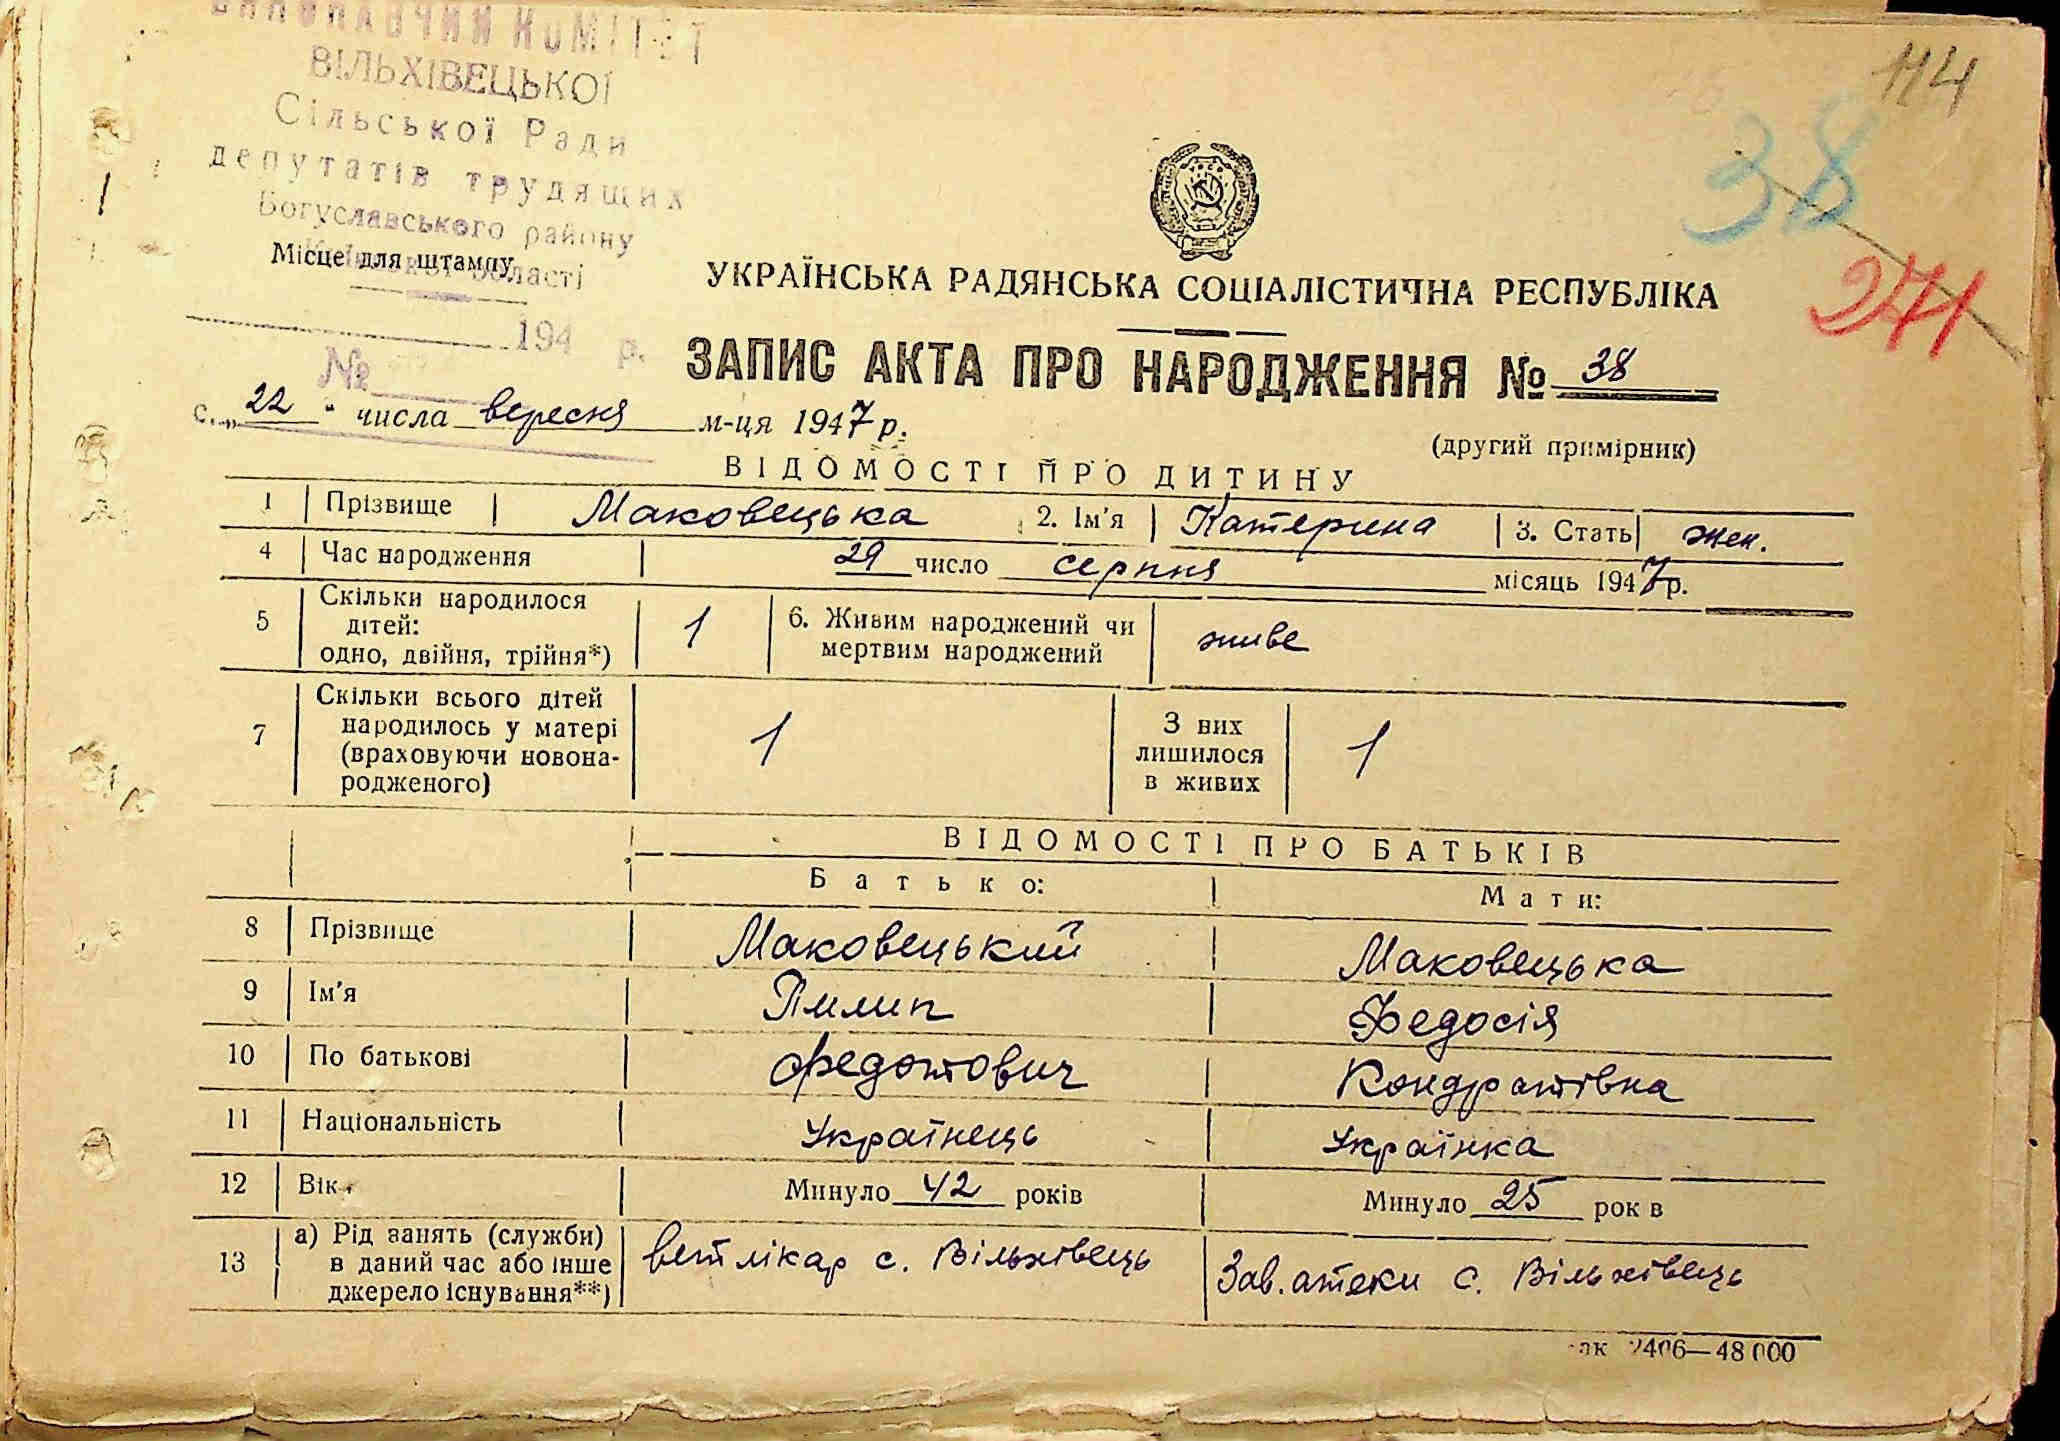 ВИКОНАВЧИЙ КОМІТЕТ
ВІЛЬХІВЕЦЬКОЇ
Сільської Ради
депутатів трудящих
Богуславського району
Київської області
Місце для штампу
194 р.
№
114
38
271
УКРАЇНСЬКА РАДЯНСЬКА СОЦІАЛІСТИЧНА РЕСПУБЛІКА
ЗАПИС АКТА ПРО НАРОДЖЕННЯ № 38
с. „22“ числа вересня м-ця 1947 р.
(другий примірник)
ВІДОМОСТІ ПРО ДИТИНУ
1 Прізвище Маковецька 2. Ім'я Катерина 3. Стать жен.
4 Час народження 29 число серпня місяць 1947 р.
5 Скільки народилося дітей: одно, двійня, трійня*) 1 6. Живим народжений чи мертвим народжений живе
7 Скільки всього дітей народилось у матері (враховуючи новона-родженого) 1 З них лишилося в живих 1
ВІДОМОСТІ ПРО БАТЬКІВ
Батько: Мати:
8 Прізвище Маковецький Маковецька
9 Ім'я Пилип Федосія
10 По батькові Федотович Кондратівна
11 Національність Українець Українка
12 Вік Минуло 42 років Минуло 25 рок в
13 а) Рід занять (служби) в даний час або інше джерело існування**) ветлікар с. Вільхівець Зав. аптеки с. Вільхівець
ак 2406—48 000